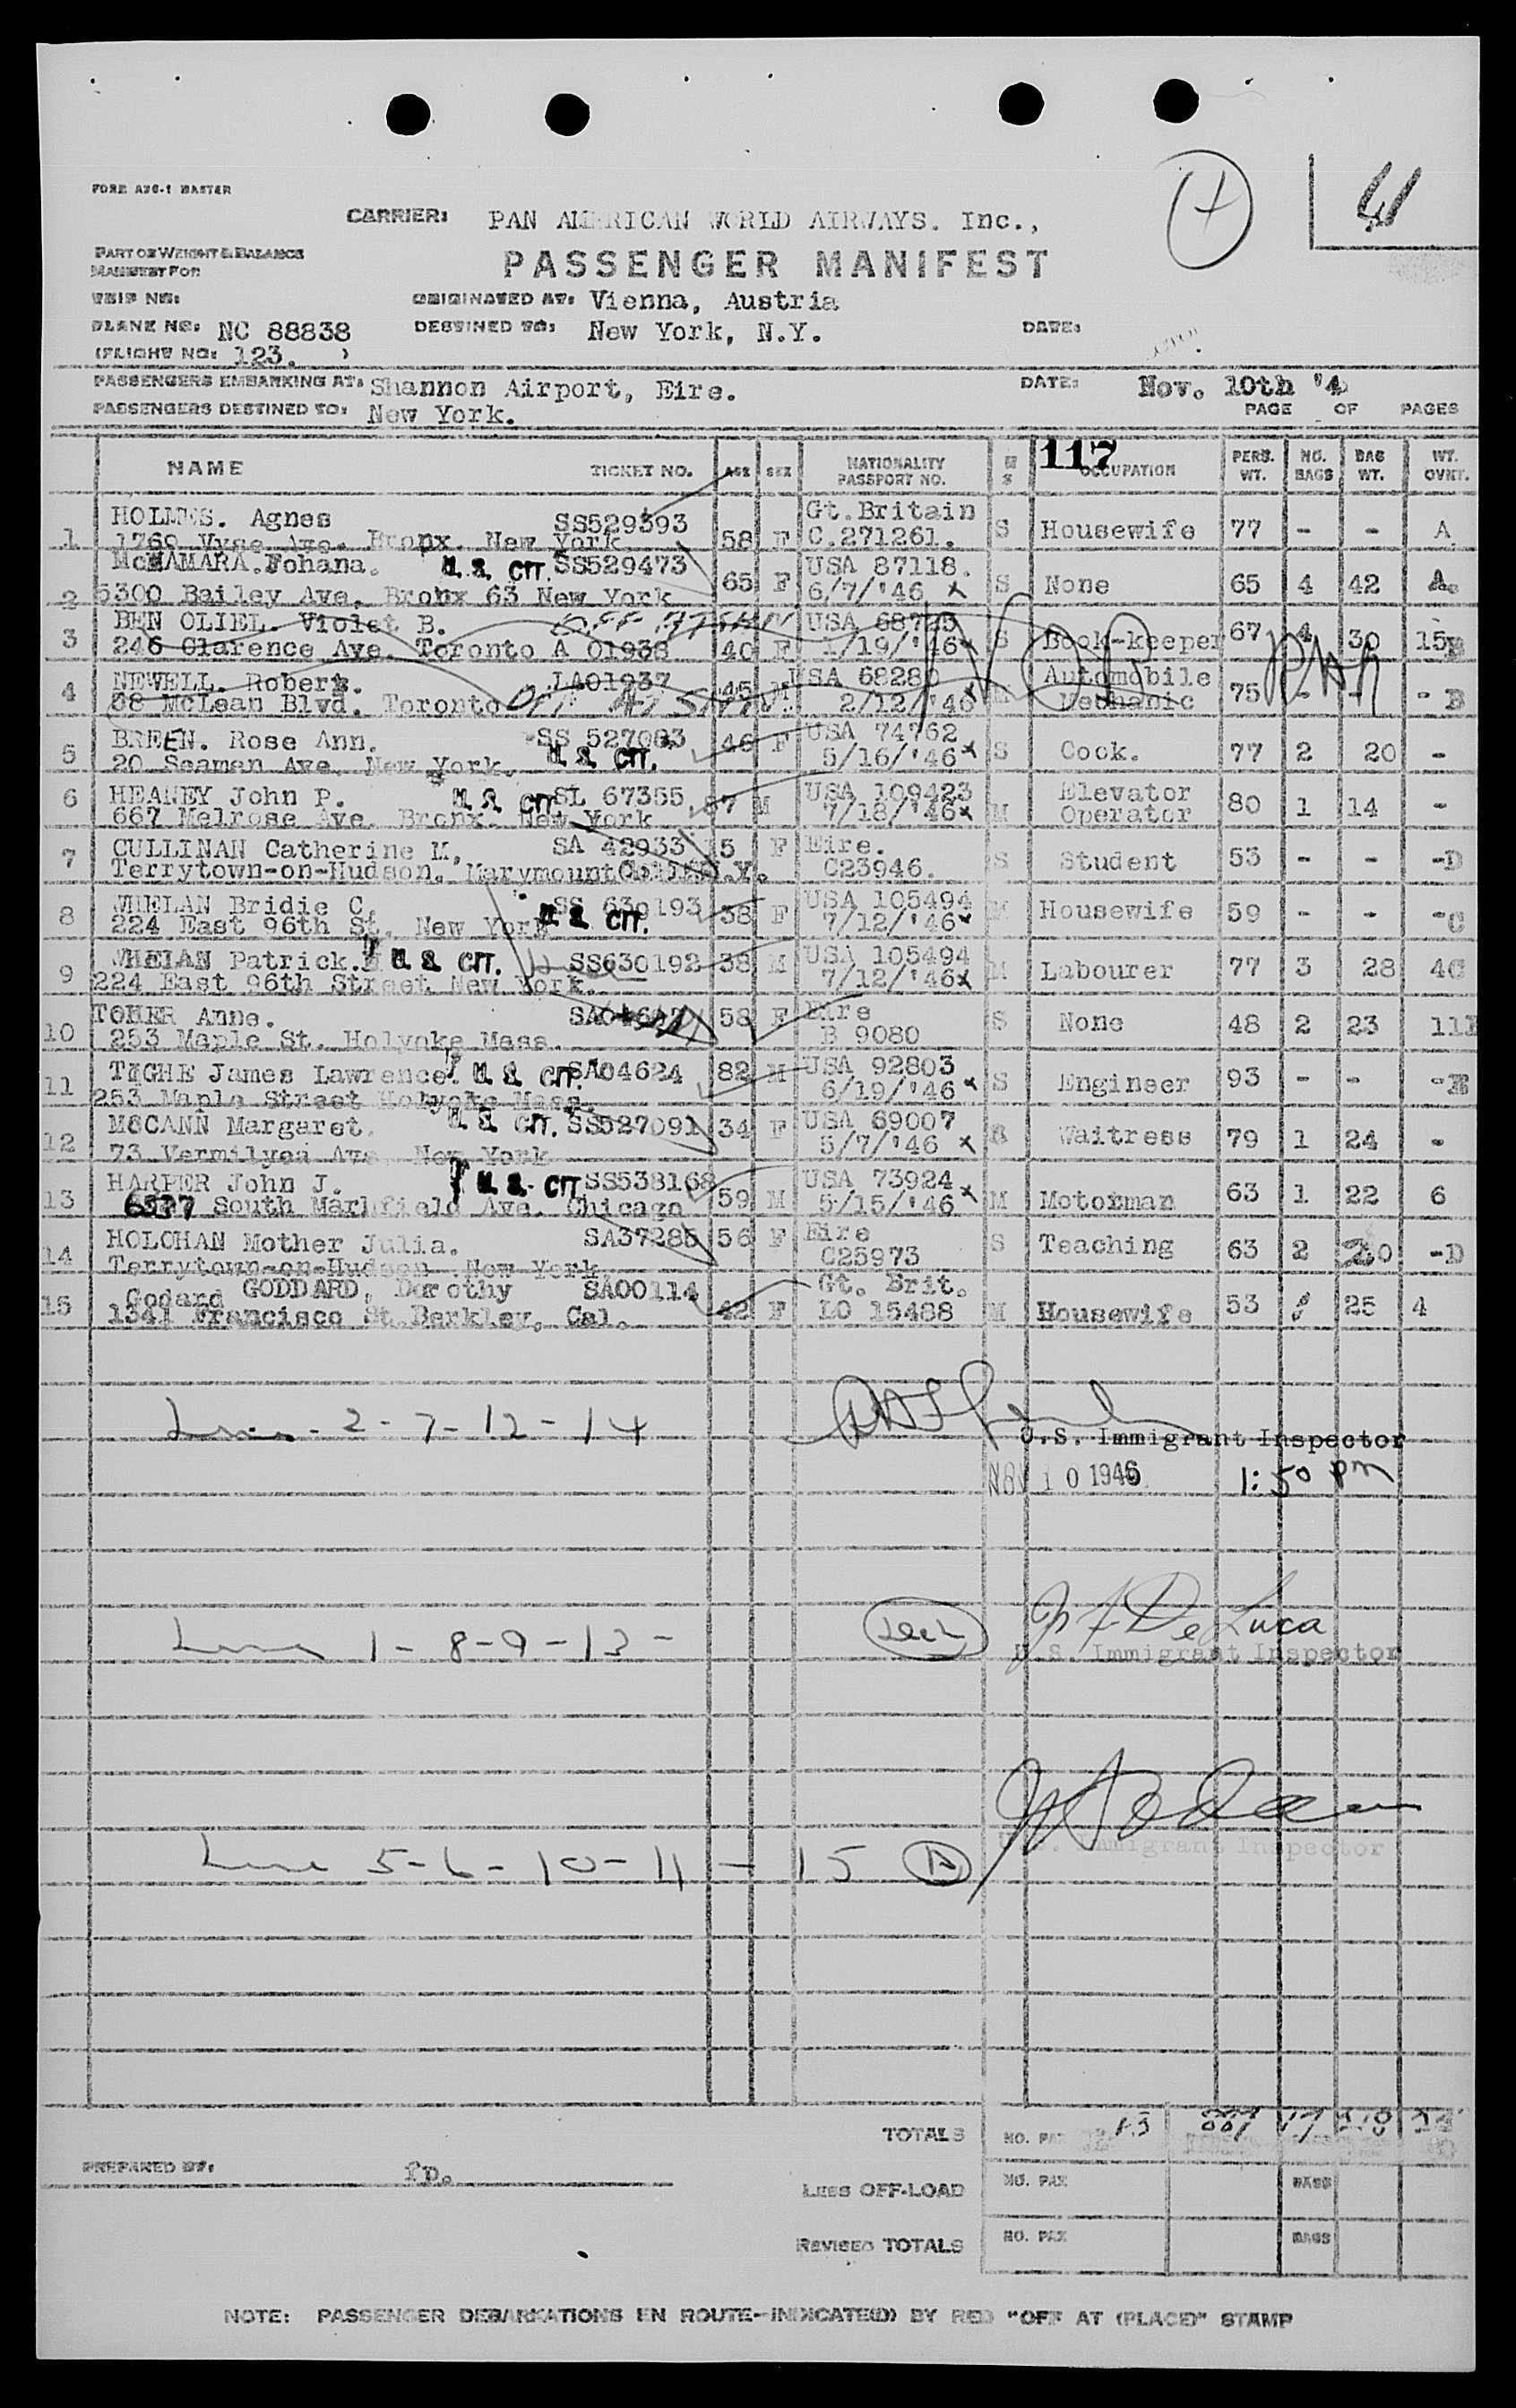 FORM A26-1 MASTER
CARRIER: PAN AMERICAN WORLD AIRWAYS. Inc.,
PART OF WEIGHT & BALANCE
MANIFEST FOR
PASSENGER MANIFEST
TRIP NO:
ORIGINATED AT: Vienna, Austria
PLANE NO: NC 88838
DESTINED TO: New York, N.Y.
DATE:
(FLIGHT NO: 123. )
PASSENGERS EMBARKING AT: Shannon Airport, Eire.
DATE: Nov. 10th '4
PASSENGERS DESTINED TO: New York.
PAGE OF PAGES
117
NAME TICKET NO. AGE SEX NATIONALITY PASSPORT NO. M S OCCUPATION PERS. WT. NO. BAGS BAG WT. WT. OVNT.
HOLMES. Agnes SS529393 Gt.Britain
1 1769 Vyse Ave. Bronx. New York 58 F C.271261. S Housewife 77 - - A
McNAMARA.Johana. U.S. CIT. SS529473 USA 87118.
2 5300 Bailey Ave. Bronx 63 New York 65 F 6/7/'46 x S None 65 4 42 A.
BEN OLIEL. Violet B. OFF AT SHN USA
3 246 Clarence Ave. Toronto A 01938 40 F 1/19/'46x S Book-keeper 67 4 30 15B
NEWELL. Robert. LA01937 USA 68280 Automobile
4 68 McLean Blvd. Toronto OFF AT SHN. 45 M 2/12/'46 M Mechanic 75 - - - B
NOB PAA
BREEN. Rose Ann. SS 527083 USA 74762
5 20 Seaman Ave. New York. U.S. CIT. 46 F 5/16/'46x S Cook. 77 2 20 -
6 HEANEY John P. U.S. CIT. SL 67355 37 M USA 109423 Elevator 80 1 14 -
667 Melrose Ave. Bronx. New York 7/18/'46x M Operator
7 CULLINAN Catherine M. SA 42933 15 F Eire. S Student 53 - - -D
Terrytown-on-Hudson. Marymount N.Y. C23946.
8 WHELAN Bridie C. SS 630193 38 F USA 105494 M Housewife 59 - - -C
224 East 96th St. New York U.S. CIT. 7/12/'46x
9 WHELAN Patrick. U.S. CIT. SS630192 38 M USA 105494 M Labourer 77 3 28 4C
224 East 96th Street New York. 7/12/'46x
TOHER Anne. 58 F Eire S None 48 2 23
10 253 Maple St. Holyoke Mass. B 9080
TIGHE James Lawrence. U.S. CIT. SA04624 82 M USA 92803
11 253 Maple Street Holyoke Mass. 6/19/'46x S Engineer 93 - - -E
McCANN Margaret. U.S. CIT. SS527091 34 F USA 69007
12 73 Vermilyea Ave New York 5/7/'46 x S Waitress 79 1 24 -
HARPER John J. U.S. CIT SS538168 USA 73924
13 6537 South Marshfield Ave. Chicago 59 M 5/15/'46x M Motorman 63 1 22 6
HOLOHAN Mother Julia. SA37285 56 F Eire S Teaching 63 2 20 -D
14 Terrytown-on-Hudson New York C25973
Godard GODDARD, Dorothy SA00114 Gt. Brit.
15 1341 Francisco St. Berkley, Cal. 42 F LO 15488 M Housewife 53 25 4
Lines - 2 - 7 - 12 - 14
U.S. Immigrant Inspector
NOV 10 1946 1:50 pm
Line 1 - 8 - 9 - 13 -
De Luca
U.S. Immigrant Inspector
Line 5 - 6 - 10 - 11 - 15
U.S. Immigrant Inspector
TOTALS NO. PAX 13
PREPARED BY: fp.
LESS OFF-LOAD NO. PAX BAGS
REVISED TOTALS NO. PAX BAGS
NOTE: PASSENGER DEBARKATIONS EN ROUTE-INDICATE(D) BY RED "OFF AT (PLACE)" STAMP